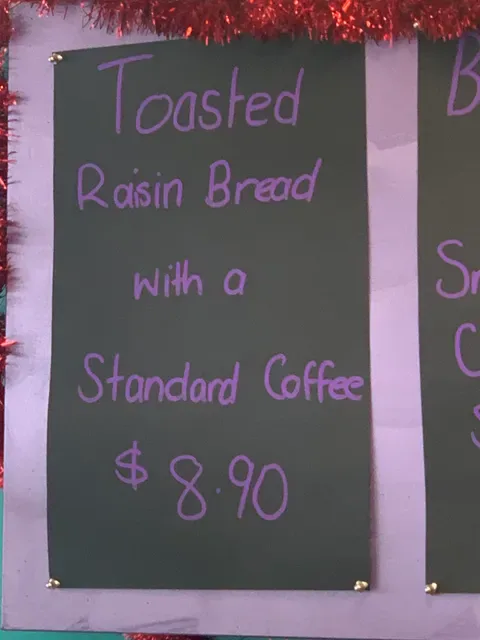 Toasted
Raisin Bread
with a
Standard Coffee
$ 8.90